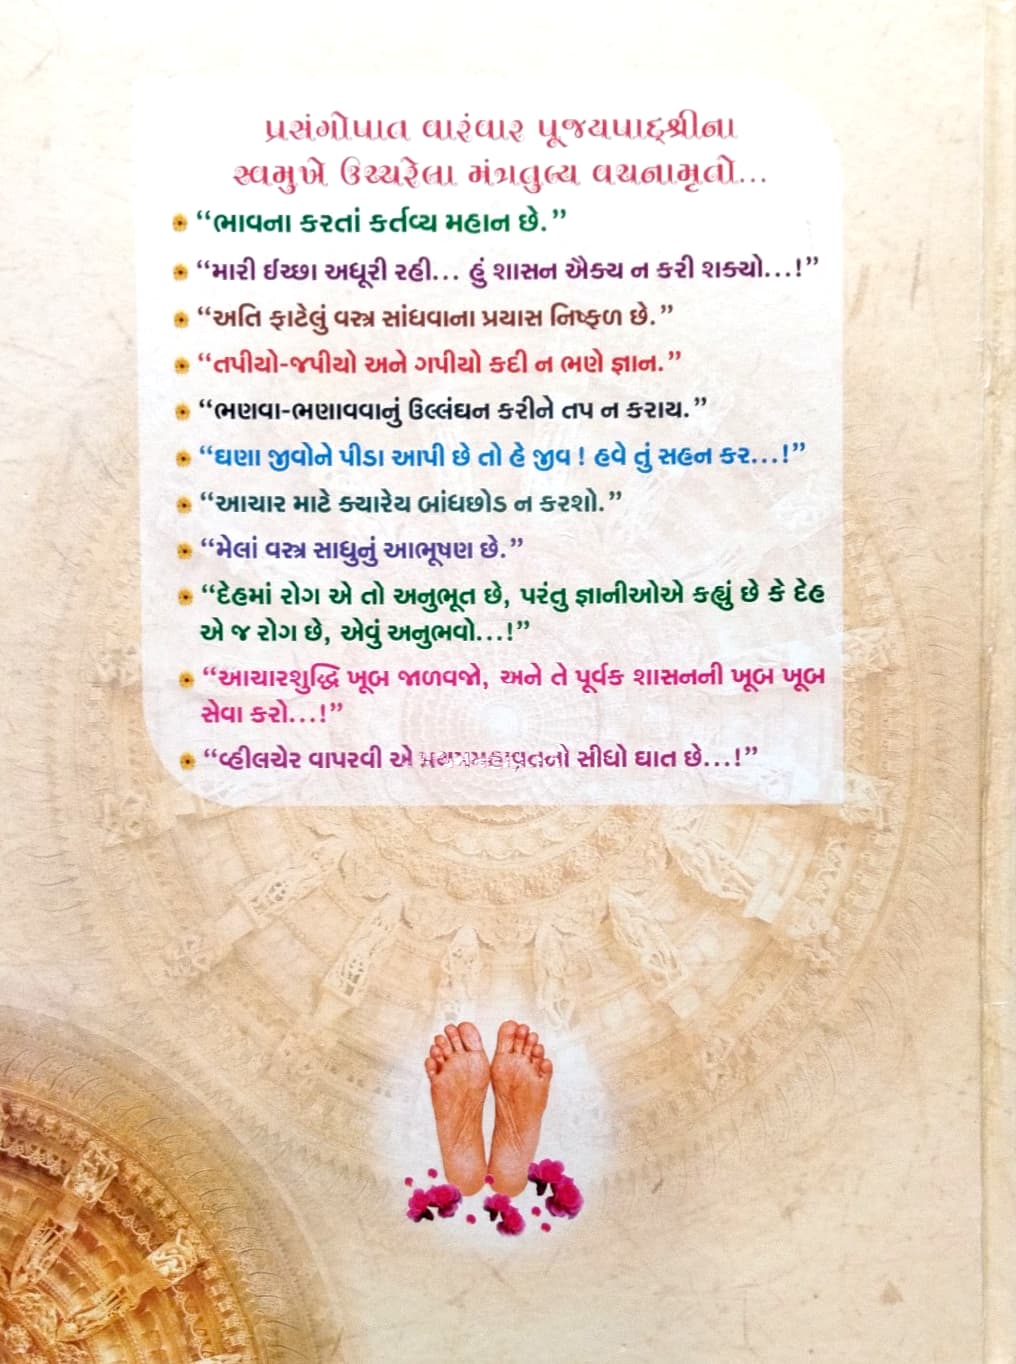 પ્રસંગોપાત વારંવાર પૂજ્યપાદ્શ્રીના
સ્વમુખે ઉચ્ચરેલા મંત્રતુલ્ય વચનામૃતો...
“ભાવના કરતાં કર્તવ્ય મહાન છે.”
“મારી ઈચ્છા અધૂરી રહી... હું શાસન ઐક્ય ન કરી શક્યો...!”
“અતિ ફાટેલું વસ્ત્ર સાંધવાના પ્રયાસ નિષ્ફળ છે.”
“તપીયો-જપીયો અને ગપીયો કદી ન ભણે જ્ઞાન.”
“ભણવા-ભણાવવાનું ઉલ્લંઘન કરીને તપ ન કરાય.”
“ઘણા જીવોને પીડા આપી છે તો હે જીવ ! હવે તું સહન કર...!”
“આચાર માટે ક્યારેય બાંધછોડ ન કરશો.”
“મેલાં વસ્ત્ર સાધુનું આભૂષણ છે.”
“દેહમાં રોગ એ તો અનુભૂત છે, પરંતુ જ્ઞાનીઓએ કહ્યું છે કે દેહ
એ જ રોગ છે, એવું અનુભવો...!”
“આચારશુદ્ધિ ખૂબ જાળવજો, અને તે પૂર્વક શાસનની ખૂબ ખૂબ
સેવા કરો...!”
“વ્હીલચેર વાપરવી એ સીધો ઘાત છે...!”